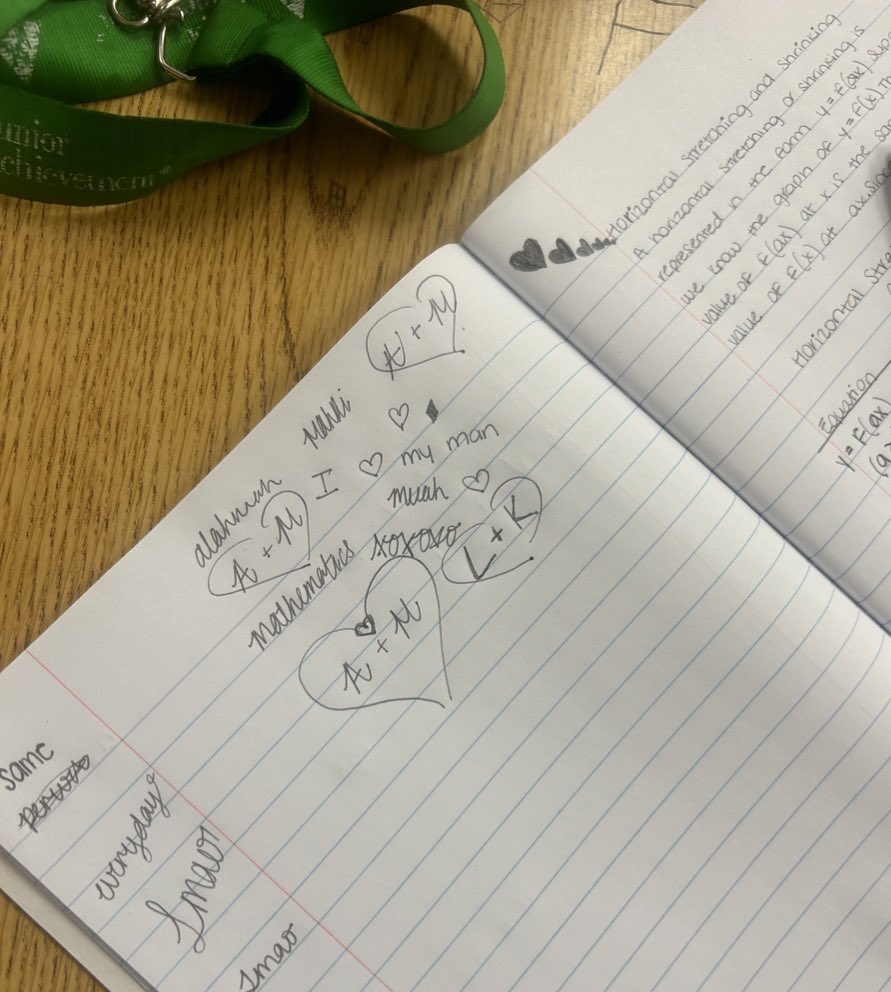 unior
chievement
Horizontal stretching and shrinking
A horizontal stretching or shrinking is
represented in the form y = F(ax)
we know the graph of y = F(x)
value of F(ax) at x is the
value of F(x) at
Horizontal
Equation
y = F(ax)
(a
A + M
Mahli
I ♡ my man
muah ♡
A + M
mathematics xoxoxo
L + K
A + M
same
everyday
Lmaor
Lmao